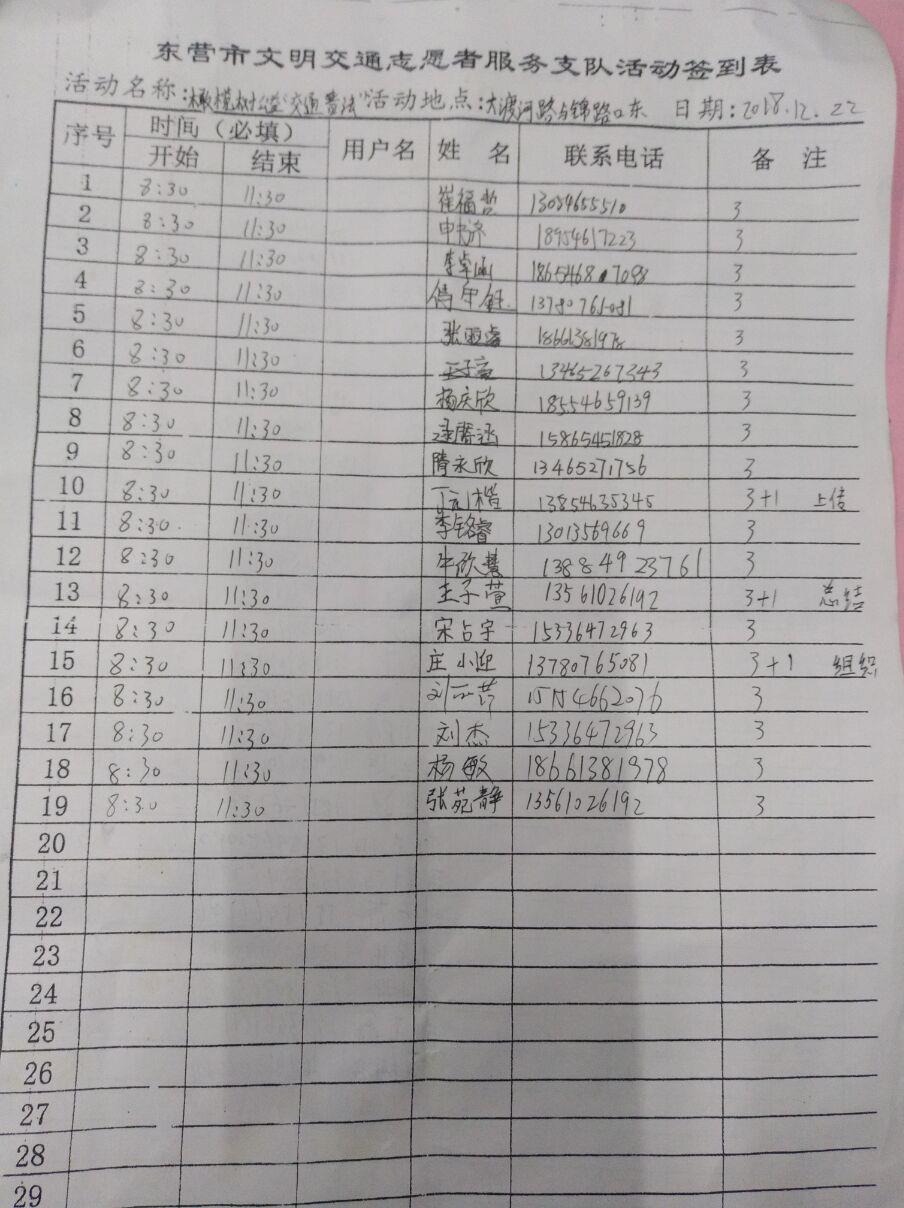 东营市文明交通志愿者服务支队活动签到表
活动名称:橄榄树公益"交通普法" 活动地点:大渡河路与锦路口东 日期:2018.12.22
序号 时间(必填) 用户名 姓 名 联系电话 备 注
开始 结束
1 8:30 11:30 崔福哲 13054655510 3
2 8:30 11:30 18954617223 3
3 8:30 11:30 李卓涵 18654687098 3
4 8:30 11:30 13780765081 3
5 8:30 11:30 张亚睿 18661381978 3
6 8:30 11:30 13465267343 3
7 8:30 11:30 杨庆欣 18554659139 3
8 8:30 11:30 15865451828 3
9 8:30 11:30 隋永欣 13465271756 3
10 8:30 11:30 13854635345 3+1 上传
11 8:30 11:30 李铭睿 13013569669 3
12 8:30 11:30 牛欣慧 13884923761 3
13 8:30 11:30 王子萱 13561026192 3+1 总结
14 8:30 11:30 宋占宇 15336472963 3
15 8:30 11:30 庄小迎 13780765081 3+1 组织
16 8:30 11:30 15154662076 3
17 8:30 11:30 刘杰 15336472963 3
18 8:30 11:30 杨敏 18661381978 3
19 8:30 11:30 张苑静 13561026192 3
20
21
22
23
24
25
26
27
28
29